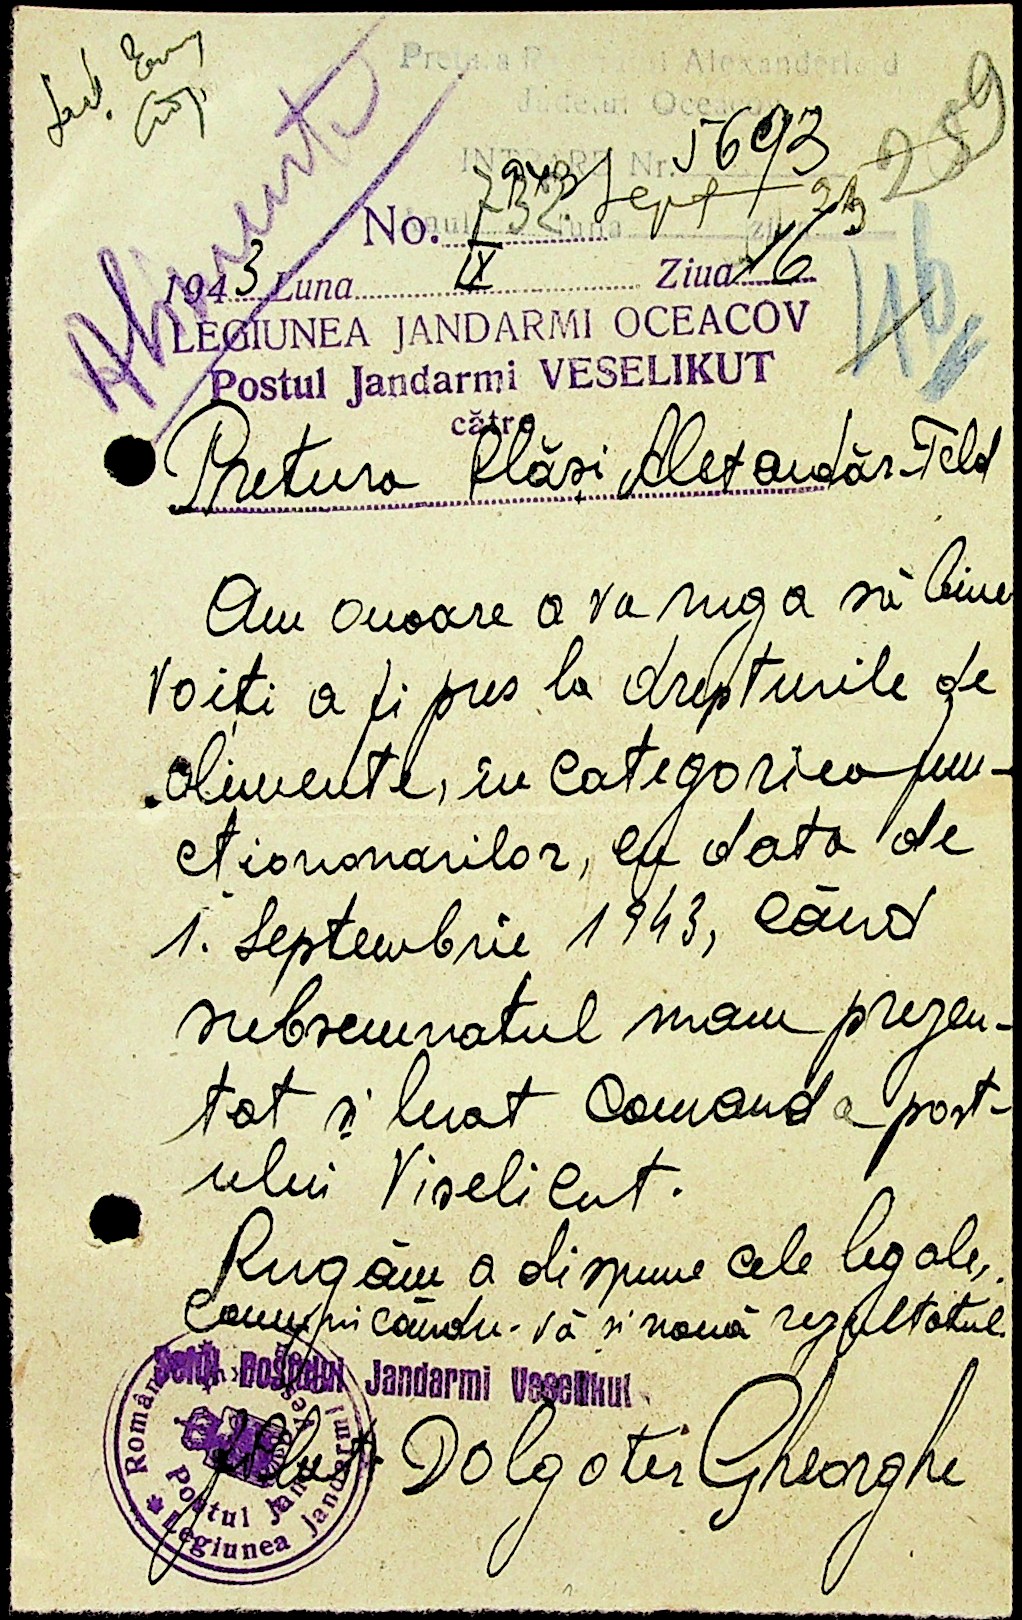 Alimente
Pretura Alexanderfeld
Județul Oceacov
INTRARE Nr. 5693
1943 Sept 23
289
No. 732
1943 Luna IX Ziua 16
146
LEGIUNEA JANDARMI OCEACOV
Postul Jandarmi VESELIKUT
către
Pretura Plăși Alexandăr-Feld
Am onoare a va ruga să bine
voiți a fi pus la drepturile de
alimente, în categoriea fun-
ctiononarilor, cu data de
1. Septembrie 1943, când
subsemnatul mam prezen-
tat și luat comanda post-
ului Viselicut.
Rugăm a dispune cele legale,
comunicându-vă și nouă rezultatul.
Șeful Postului Jandarmi Veselikut
Dolgoter Gheorghe
Postul Jand
Legiunea Jandarmi